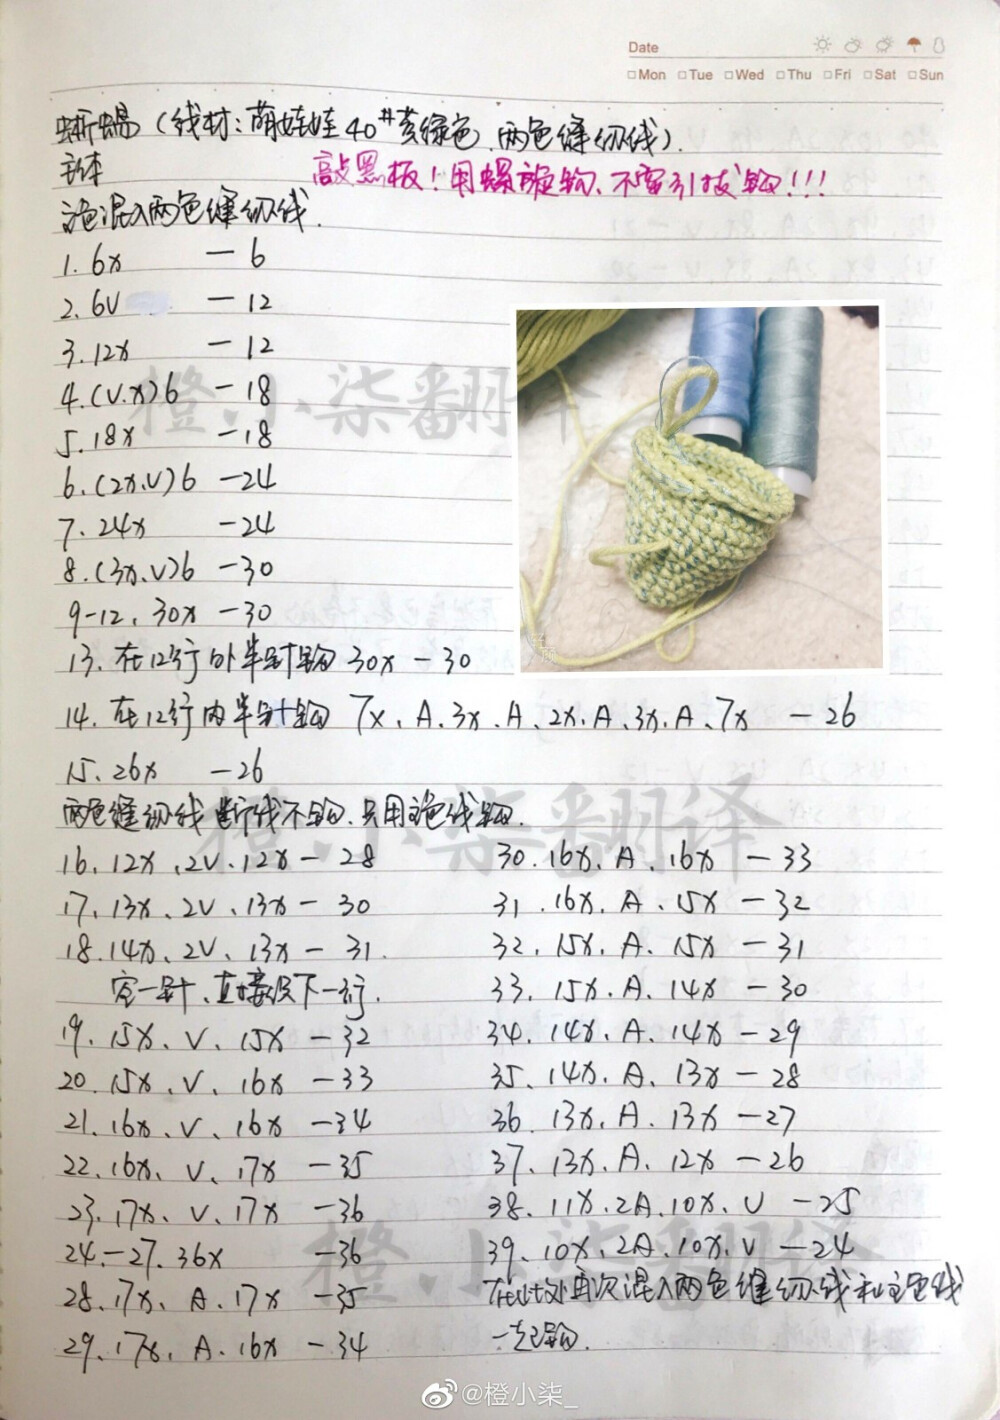 Date
Mon Tue Wed Thu Fri Sat Sun
蜥蜴(线材:萌娃娃40#黄绿色、两色缝纫线).
主体
敲黑板!用螺旋钩、不要引拔钩!!!
主色混入两色缝纫线.
1. 6x — 6
2. 6V — 12
3. 12x — 12
4. (V.x)6 — 18
5. 18x — 18
6. (2x.V)6 — 24
7. 24x — 24
8. (3x.V)6 — 30
9-12. 30x — 30
13. 在12行外半针钩 30x — 30
14. 在12行内半针钩 7x、A、3x、A、2x、A、3x、A、7x — 26
15. 26x — 26
两色缝纫线断线不钩.只用主色线钩.
16. 12x、2V、12x — 28
17. 13x、2V、13x — 30
18. 14x、2V、13x — 31.
空一针、直接钩下一行.
19. 15x、V、15x — 32
20. 15x、V、16x — 33
21. 16x、V、16x — 34
22. 16x、V、17x — 35
23. 17x、V、17x — 36
24.-27. 36x — 36
28. 17x、A、17x — 35
29. 17x、A、16x — 34
30. 16x、A、16x — 33
31. 16x、A、15x — 32
32. 15x、A、15x — 31
33. 15x、A、14x — 30
34. 14x、A、14x — 29
35. 14x、A、13x — 28
36. 13x、A、13x — 27
37. 13x、A、12x — 26
38. 11x、2A、10x、V — 25
39. 10x、2A、10x、V — 24
在此处再次混入两色缝纫线和主色线
一起钩.
橙小柒翻译
橙小柒翻译
橙小柒翻译
@橙小柒_